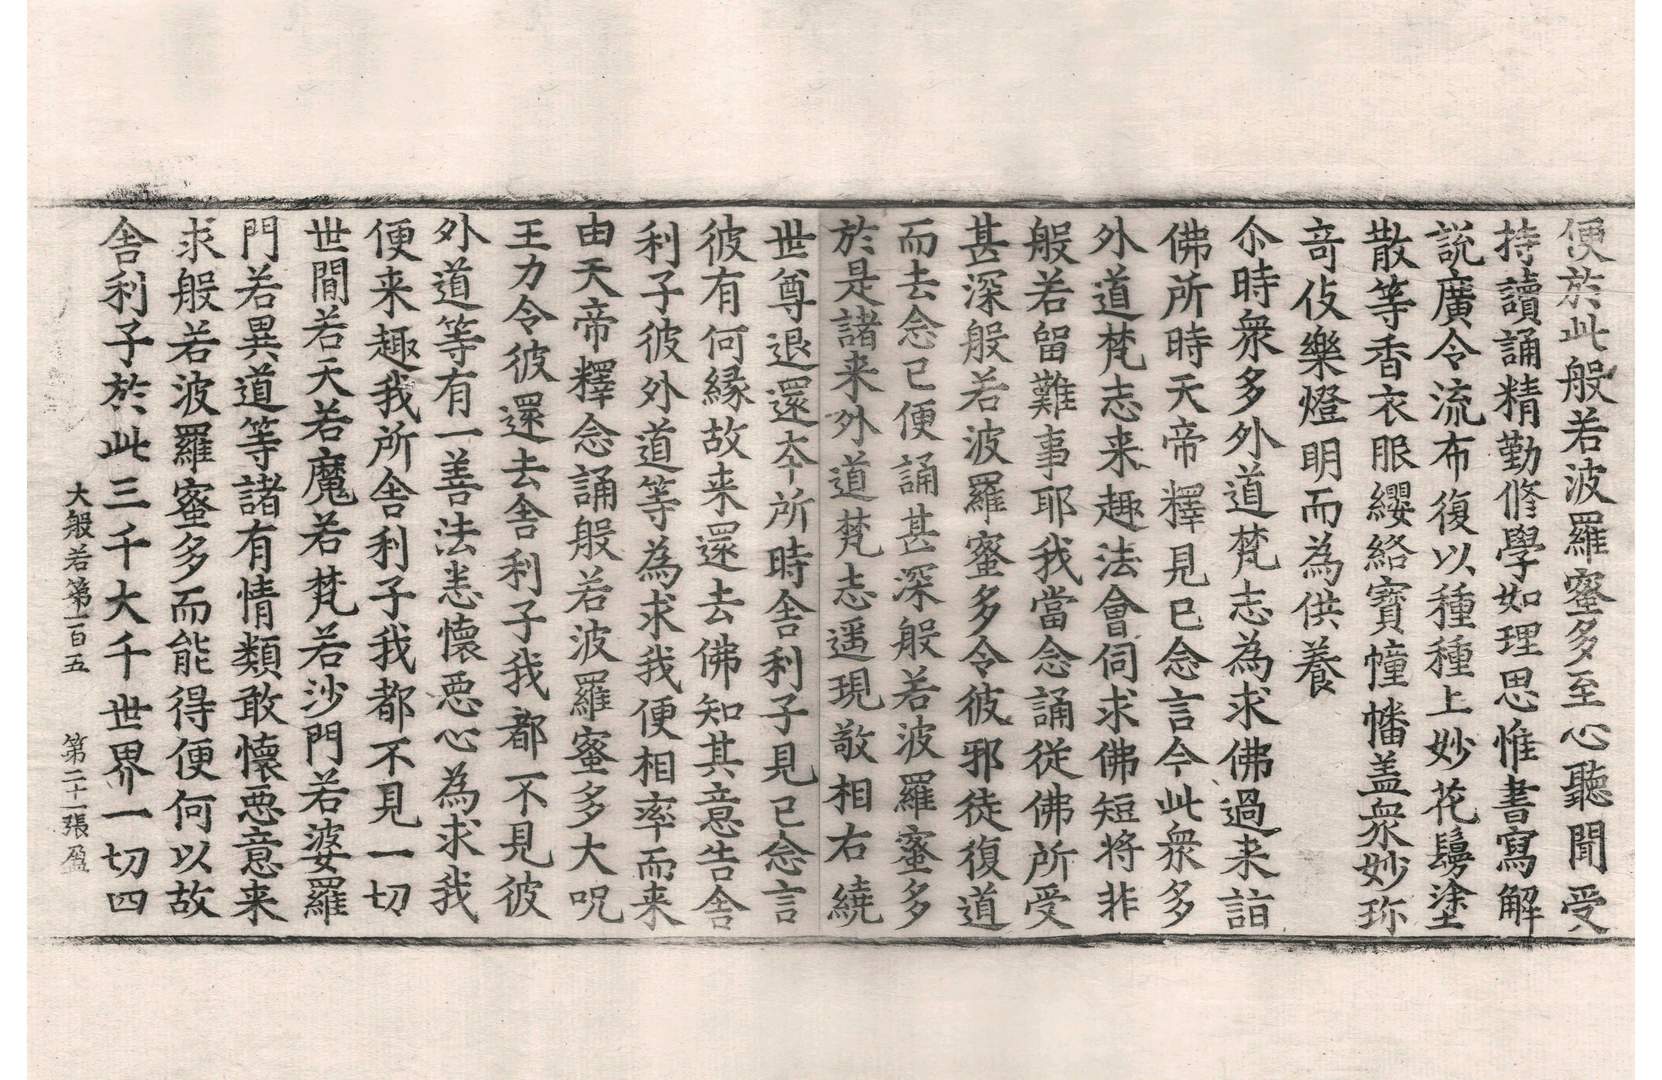 便於此般若波羅蜜多至心聽聞受
持讀誦精勤修學如理思惟書寫解
說廣令流布復以種種上妙花鬘塗
散等香衣服纓絡寶幢幡盖衆妙珎
竒伎樂燈明而為供養
尒時衆多外道梵志為求佛過来詣
佛所時天帝釋見已念言今此衆多
外道梵志来趣法會伺求佛短將非
般若留難事耶我當念誦從佛所受
甚深般若波羅蜜多令彼邪徒復道
而去念已便誦甚深般若波羅蜜多
於是諸来外道梵志遥現敬相右繞
世尊退還夲所時舍利子見已念言
彼有何縁故来還去佛知其意告舍
利子彼外道等為求我便相率而来
由天帝釋念誦般若波羅蜜多大呪
王力令彼還去舍利子我都不見彼
外道等有一善法恙懷惡心為求我
便来趣我所舍利子我都不見一切
世間若天若魔若梵若沙門若婆羅
門若異道等諸有情類敢懷惡意来
求般若波羅蜜多而能得便何以故
舍利子於此三千大千世界一切四
大般若第一百五 第二十一張 盈